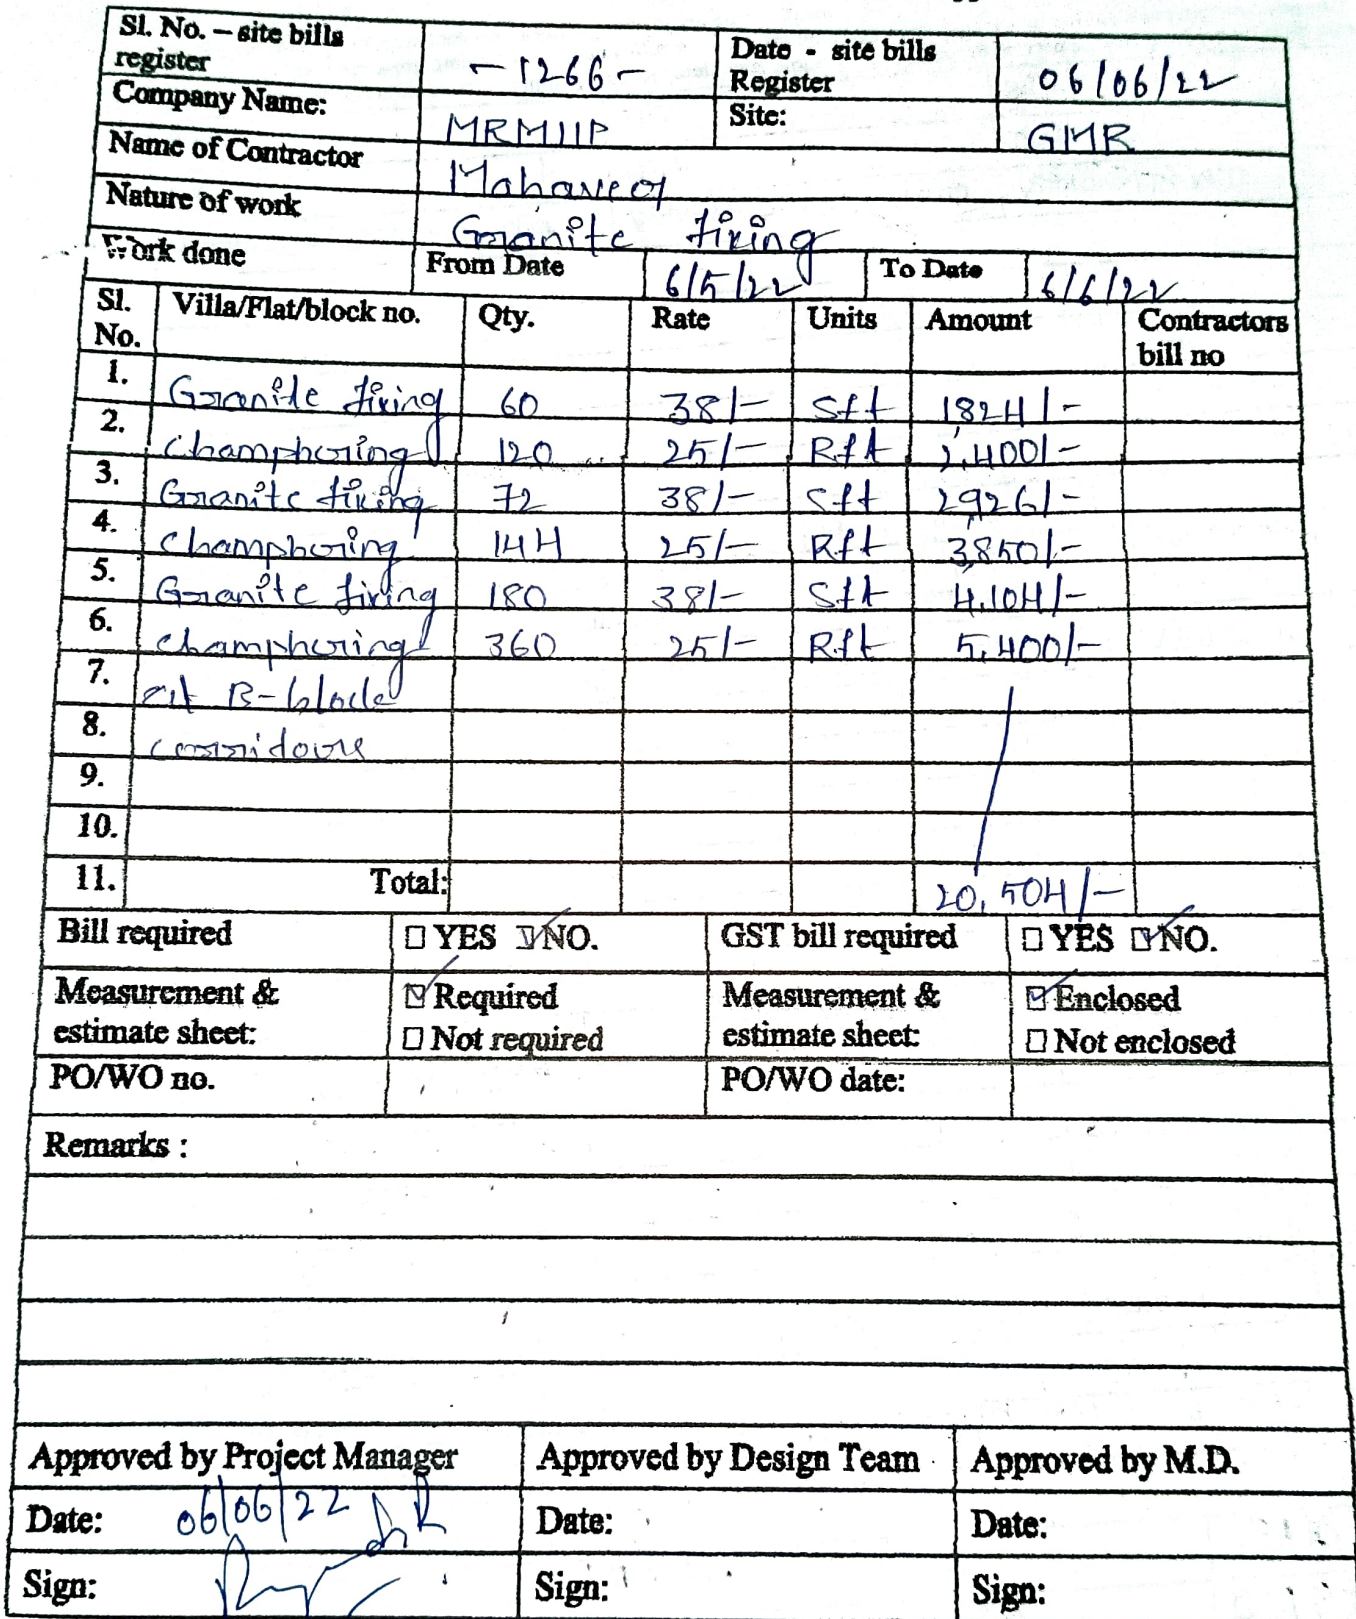 Sl. No. – site bills register -1266- Date - site bills Register 06/06/22
Company Name: MRMIIP Site: GMR
Name of Contractor Mahaveer
Nature of work Granite fixing
Work done From Date 6/5/22 To Date 6/6/22
Sl. No. Villa/Flat/block no. Qty. Rate Units Amount Contractors bill no
1. Granite fixing 60 38/- Sft 1824/-
2. Champhering 120 25/- Rft 2,400/-
3. Granite fixing 72 38/- Sft 2926/-
4. Champhering 144 25/- Rft 3,850/-
5. Granite fixing 180 38/- Sft 4,104/-
6. Champhering 360 25/- Rft 5,400/-
7. at B-block
8. corridours
9.
10.
11. Total: 20,504/-
Bill required YES NO. GST bill required YES NO.
Measurement & estimate sheet: Required Not required Measurement & estimate sheet: Enclosed Not enclosed
PO/WO no. PO/WO date:
Remarks :
Approved by Project Manager Approved by Design Team Approved by M.D.
Date: 06/06/22 Date: Date:
Sign: Sign: Sign: